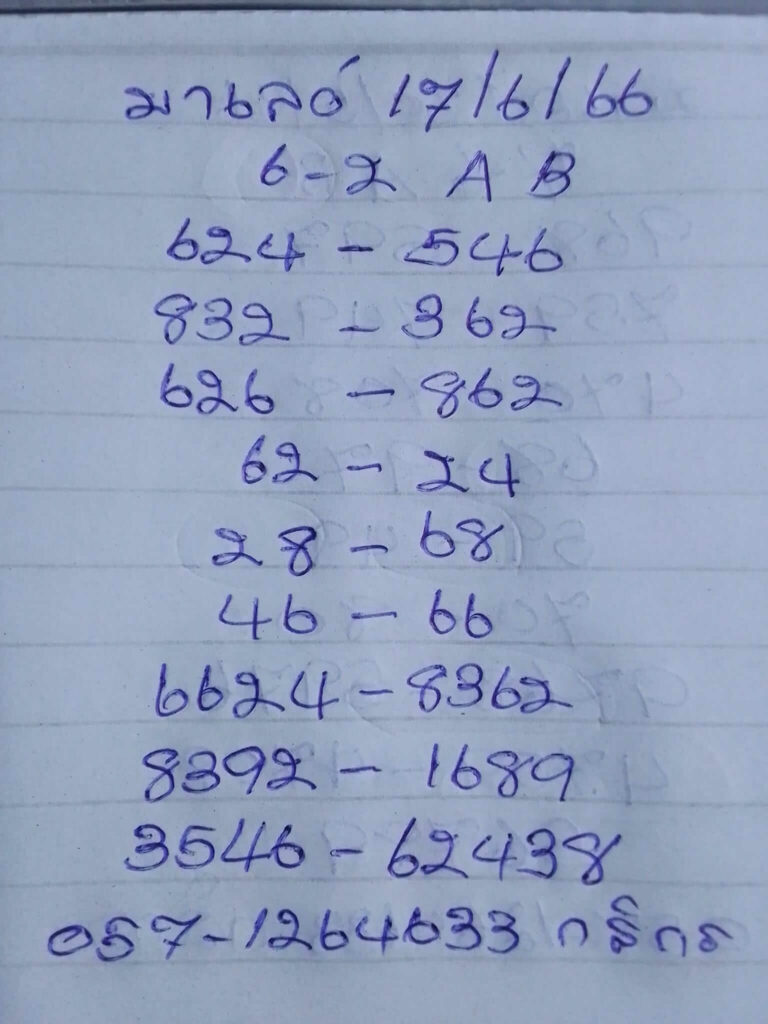 มาเลย์ 17/6/66
6-2 A B
624 - 546
832 - 362
626 - 862
62 - 24
28 - 68
46 - 66
6624 - 8362
8392 - 1689
3546 - 62438
057-1264633